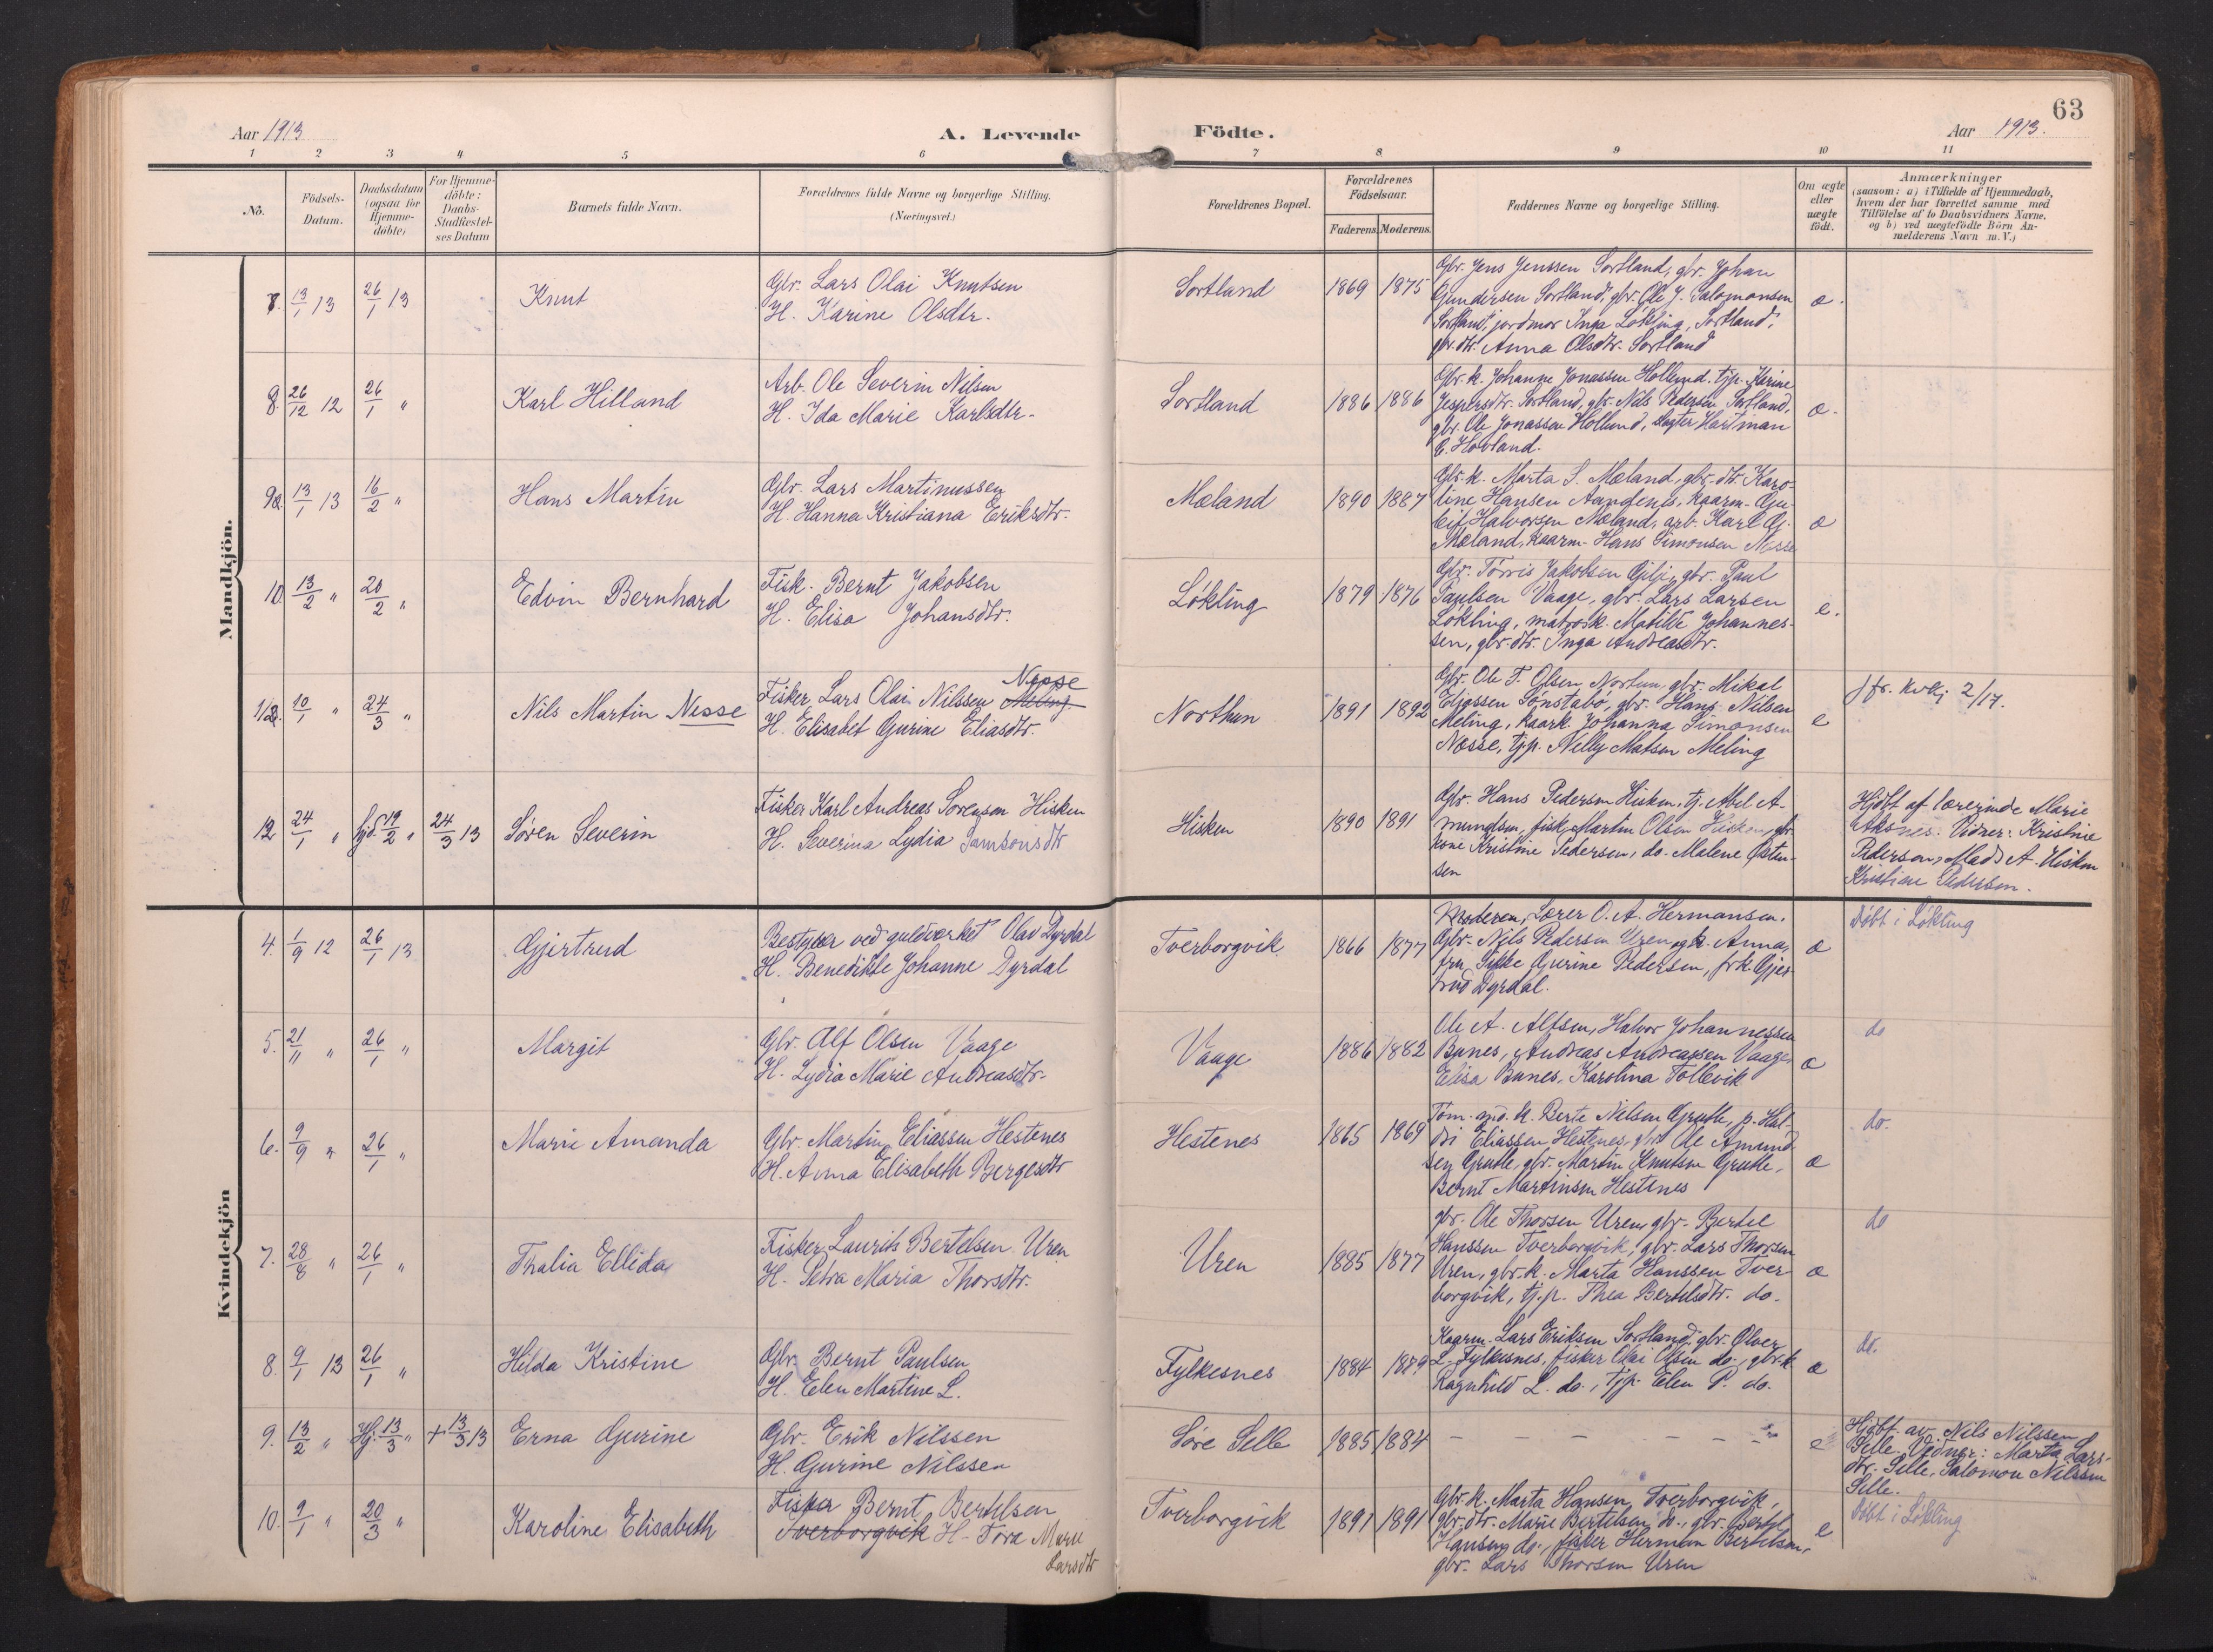 63
Aar 1913
A. Levende Födte.
Aar 1913.
1 2 3 4 5 6 7 8 9 10 11
No.
Födsels-Datum.
Daabsdatum (ogsaa for Hjemme-döbte)
For Hjemme-döbte: Daabs-Stadfæstel-ses Datum
Barnets fulde Navn.
Forældrenes fulde Navne og borgerlige Stilling.
(Næringsvei.)
Forældrenes Bopæl.
Forældrenes Födselsaar.
Faderens. Moderens.
Faddernes Navne og borgerlige Stilling.
Om ægte eller uægte födt.
Anmærkninger
(saasom: a) i Tilfælde af Hjemmedaab,
hvem der har forrettet samme med
Tilföielse af to Daabsvidners Navne.
og b) ved uægtefödte Börn An-
melderens Navn m.V.)
Mandkjön.
7. 13/1 13 26/1 13 Knut
Gbr. Lars Olai Knutsen
H. Karine Olsdtr.
Sortland 1869 1875
Gbr. Jens Jenssen Sortland, gbr. Johan
Gundersen Sortland, gbr. Ole J. Salomonsen
Sortland, jordmor Inga Løkling, Sortland,
gbr. dtr. Anna Olsdtr. Sortland
æ.
8. 26/12 12 26/1 " Karl Hilland
Arb. Ole Severin Nilsen
H. Ida Marie Karlsdtr.
Sortland 1886 1886
Gbr. k. Johanne Jonassen Hollund, tjp. Karine
Jespersdtr. Sortland, gbr. Nils Pedersen Sortland,
gbr. Ole Jonassen Hollund, slagter Hartman
E. Hovland.
æ.
9. 13/1 13 16/2 " Hans Martin
Gbr. Lars Martinussen
H. Hanna Kristiana Eriksdtr.
Mæland 1890 1887
Gbr. k. Marta S. Mæland, gbr. dtr. Karo-
line Hansen Aandenes, kaarm. Gu-
leif Halvorsen Mæland, arb. Karl G.
Mæland, kaarm. Hans Simonsen Nesse
æ
10. 13/2 " 20/2 " Edvin Bernhard
Fisk. Bernt Jakobsen
H. Elisa Johansdtr.
Løkling 1879 1876
Gbr. Tørris Jakobsen Gilje, gbr. Paul
Paulsen Vaage, gbr. Lars Larsen
Løkling, matrosk. Matilde Johannes-
sen, gbr. dtr. Inga Andreasdtr.
e.
11. 10/1 " 24/3 " Nils Martin Nesse
Nesse
Fisker Lars Olai Nilssen Meling
H. Elisabet Gurine Eliasdtr.
Northun 1891 1892
Gbr. Ole T. Olsen Northun, gbr. Mikal
Eliassen Sønstabø, gbr. Hans Nilsen
Meling, kaark. Johanna Simonsen
Nesse, tjp. Nelly Matsen Meling
e
jfr. kvkj 2/17.
12 24/1 " Hjd. 19/2 " 24/3 13 Søren Severin
Fisker Karl Andreas Sørensen Hisken
H. Severina Lydia Samsonsdtr
Hisken 1890 1891
Gbr. Hans Pedersen Hisken, tj. Abel A-
mundsen, fisk. Martin Olsen Hisken, gbr.
kone Kristine Pedersen, do. Malene Østen-
sen
Hjdbt af lærerinde Marie
Aksnes. Vidner: Kristine
Pedersen, Mads A. Hisken
Kristine Pedersen.
Kvindekjön
4. 1/9 12 26/1 13 Gjertrud
Bestyrer ved guldværket Olav Dyrdal
H. Benedikte Johanne Dyrdal
Tverborgvik 1866 1877
Moderen, Lærer O. A. Hermansen.
Gbr. Nils Pedersen Uren og k. Anna,
fru Gurine Pedersen, frk. Gjer-
trud Dyrdal.
æ
Døbt i Løkling
5. 21/11 " 26/1 " Margit
Gbr. Alf Olsen Vaage
H. Lydia Marie Andreasdtr.
Vaage 1886 1882
Ole A. Alfsen, Halvor Johannessen
Bunes, Andreas Andreassen Vaage,
Elisa Bunes, Karolina Tollevik
æ
do
6. 9/9 " 26/1 " Marie Amanda
Gbr Martin Eliassen Hestenes
H. Anna Elisabeth Børgesdtr
Hestenes 1865 1869
Tøm. md. k. Berte Nilsen Grutle, p. Hal-
dri Eliassen Hestenes, gbr. Ole Amund-
sen Grutle, gbr. Martin Knutsen Grutle,
Bernt Martinsen Hestenes
æ
do.
7. 28/8 " 26/1 " Thalia Ellida
Fisker Laurits Bertelsen Uren
H. Petra Maria Thorsdtr.
Uren 1885 1877
gbr. Ole Thorsen Uren, gbr. Bertel
Hanssen Tverborgvik, gbr. Lars Thorsen
Uren, gbr. k. Marta Hanssen Tver-
borgvik, tj.p. Thea Bertelsdtr. do.
æ
do
8. 9/1 13 26/1 " Hilda Kristine
Gbr. Bernt Paulsen
H. Elen Martine L.
Fylkesnes 1884 1879
Kaarm. Lars Eriksen Sortland, gbr. Olver
L. Fylkesnes, fisker Olai Olsen do., gbr. k.
Ragnhild L. do., tjp. Elen P. do.
æ
do.
9. 13/2 " Hj. 13/3 " + 13/3 13 Erna Gurine
Gbr. Erik Nilssen
H. Gurine Nilssen
Søre Selle 1885 1884
— — — — — — —
e
Hjdbt. av Nils Nilssen
Selle. Vidner: Marta Lars-
dtr. Selle, Salomon Nilssen
Selle.
10. 9/1 " 20/3 " Karoline Elisabeth
Fisker Bernt Bertelsen
Tverborgvik H. Tora Marie
Larsdtr
Tverborgvik 1891 1891
Gbr. k. Marta Hansen Tverborgvik,
gbr. dtr. Marie Bertelsen do., gbr. Bertel
Hansen do., fisker Herman Bertelsen,
gbr. Lars Thorsen Uren
e
Døbt i Løkling